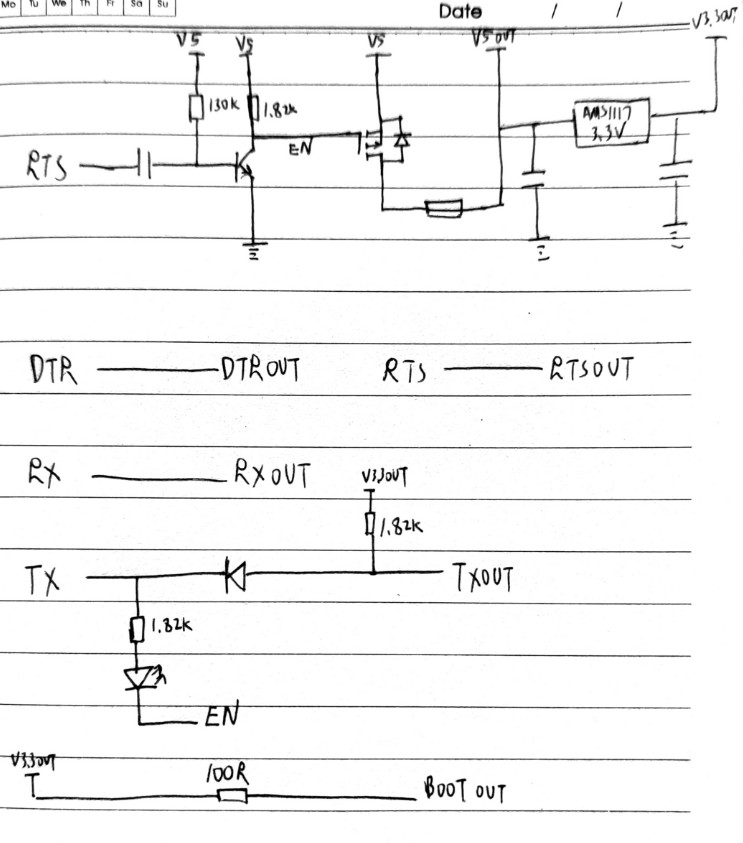 Mo Tu We Th Fr Sa Su
Date / /
V5 V5 V5 V5OUT V3.3OUT
130k 1.82k
AMS1117
3.3V
EN
RTS
DTR DTROUT RTS RTSOUT
RX RXOUT V3.3OUT
1.82k
TX TXOUT
1.82k
EN
V3.3OUT
100R
BOOT OUT